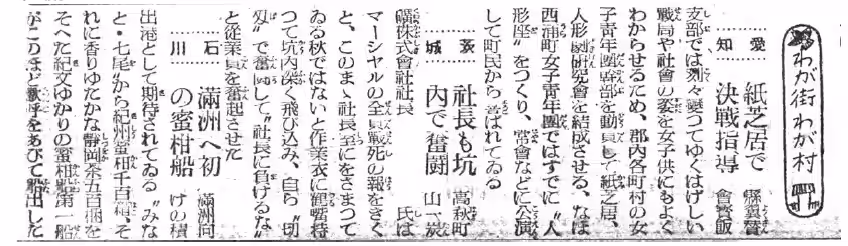 わが街わが村
愛知
紙芝居で
決戦指導
縣翼賛
會寳飯
支部では刻々變つてゆくはげしい
戰局や社會の姿を女子供にもよく
わからせるため、郡内各町村の女
子青年團幹部を動員して紙芝居、
人形劇研究會を結成させる、なほ
西浦町女子青年團ではすでに〝人
形座〟をつくり、常會などに公演
して町民から喜ばれてゐる
茨城
社長も坑
内で奮闘
高萩町
山一炭
礦株式會社社長　　　氏は
マーシヤルの全員戰死の報をきく
と、このまゝ社長室にをさまつて
ゐる秋ではないと作業衣に鶴嘴持
つて坑内深く飛び込み、自ら〝切
羽〟で奮闘して〝社長に負けるな〟
と從業員を奮起させた
石川
滿洲へ初
の蜜柑船
滿洲向
けの積
出港として期待されてゐる〝みな
と・七尾〟から紀州蜜柑千百箱、そ
れに香りゆたかな靜岡茶五百梱を
そへた紀文ゆかりの蜜柑船第一船
がこのほど歡呼をあびて船出した